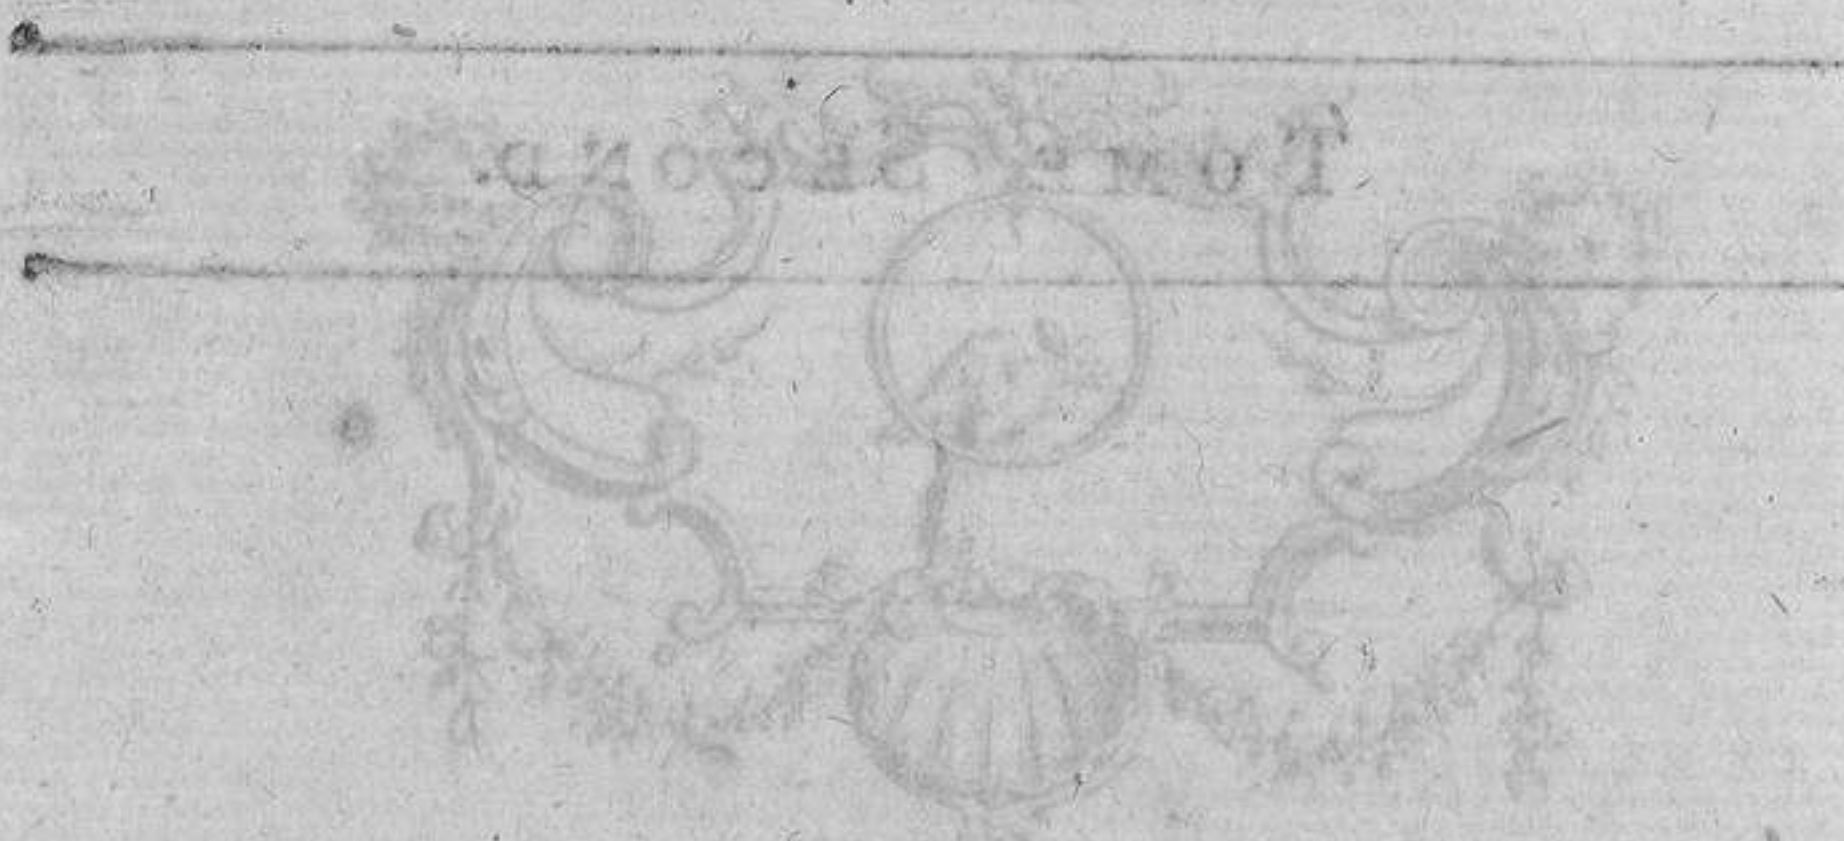 TOME SECOND.